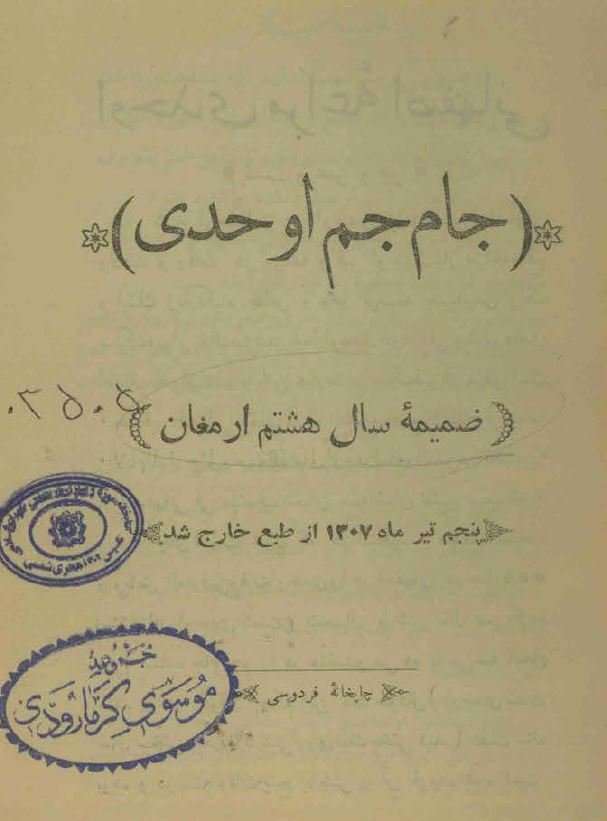 (جام جم اوحدی)
ضمیمهٔ سال هشتم ارمغان
پنجم تیر ماه ۱۳۰۷ از طبع خارج شد
چاپخانهٔ فردوسی
موسوی گرمارودی